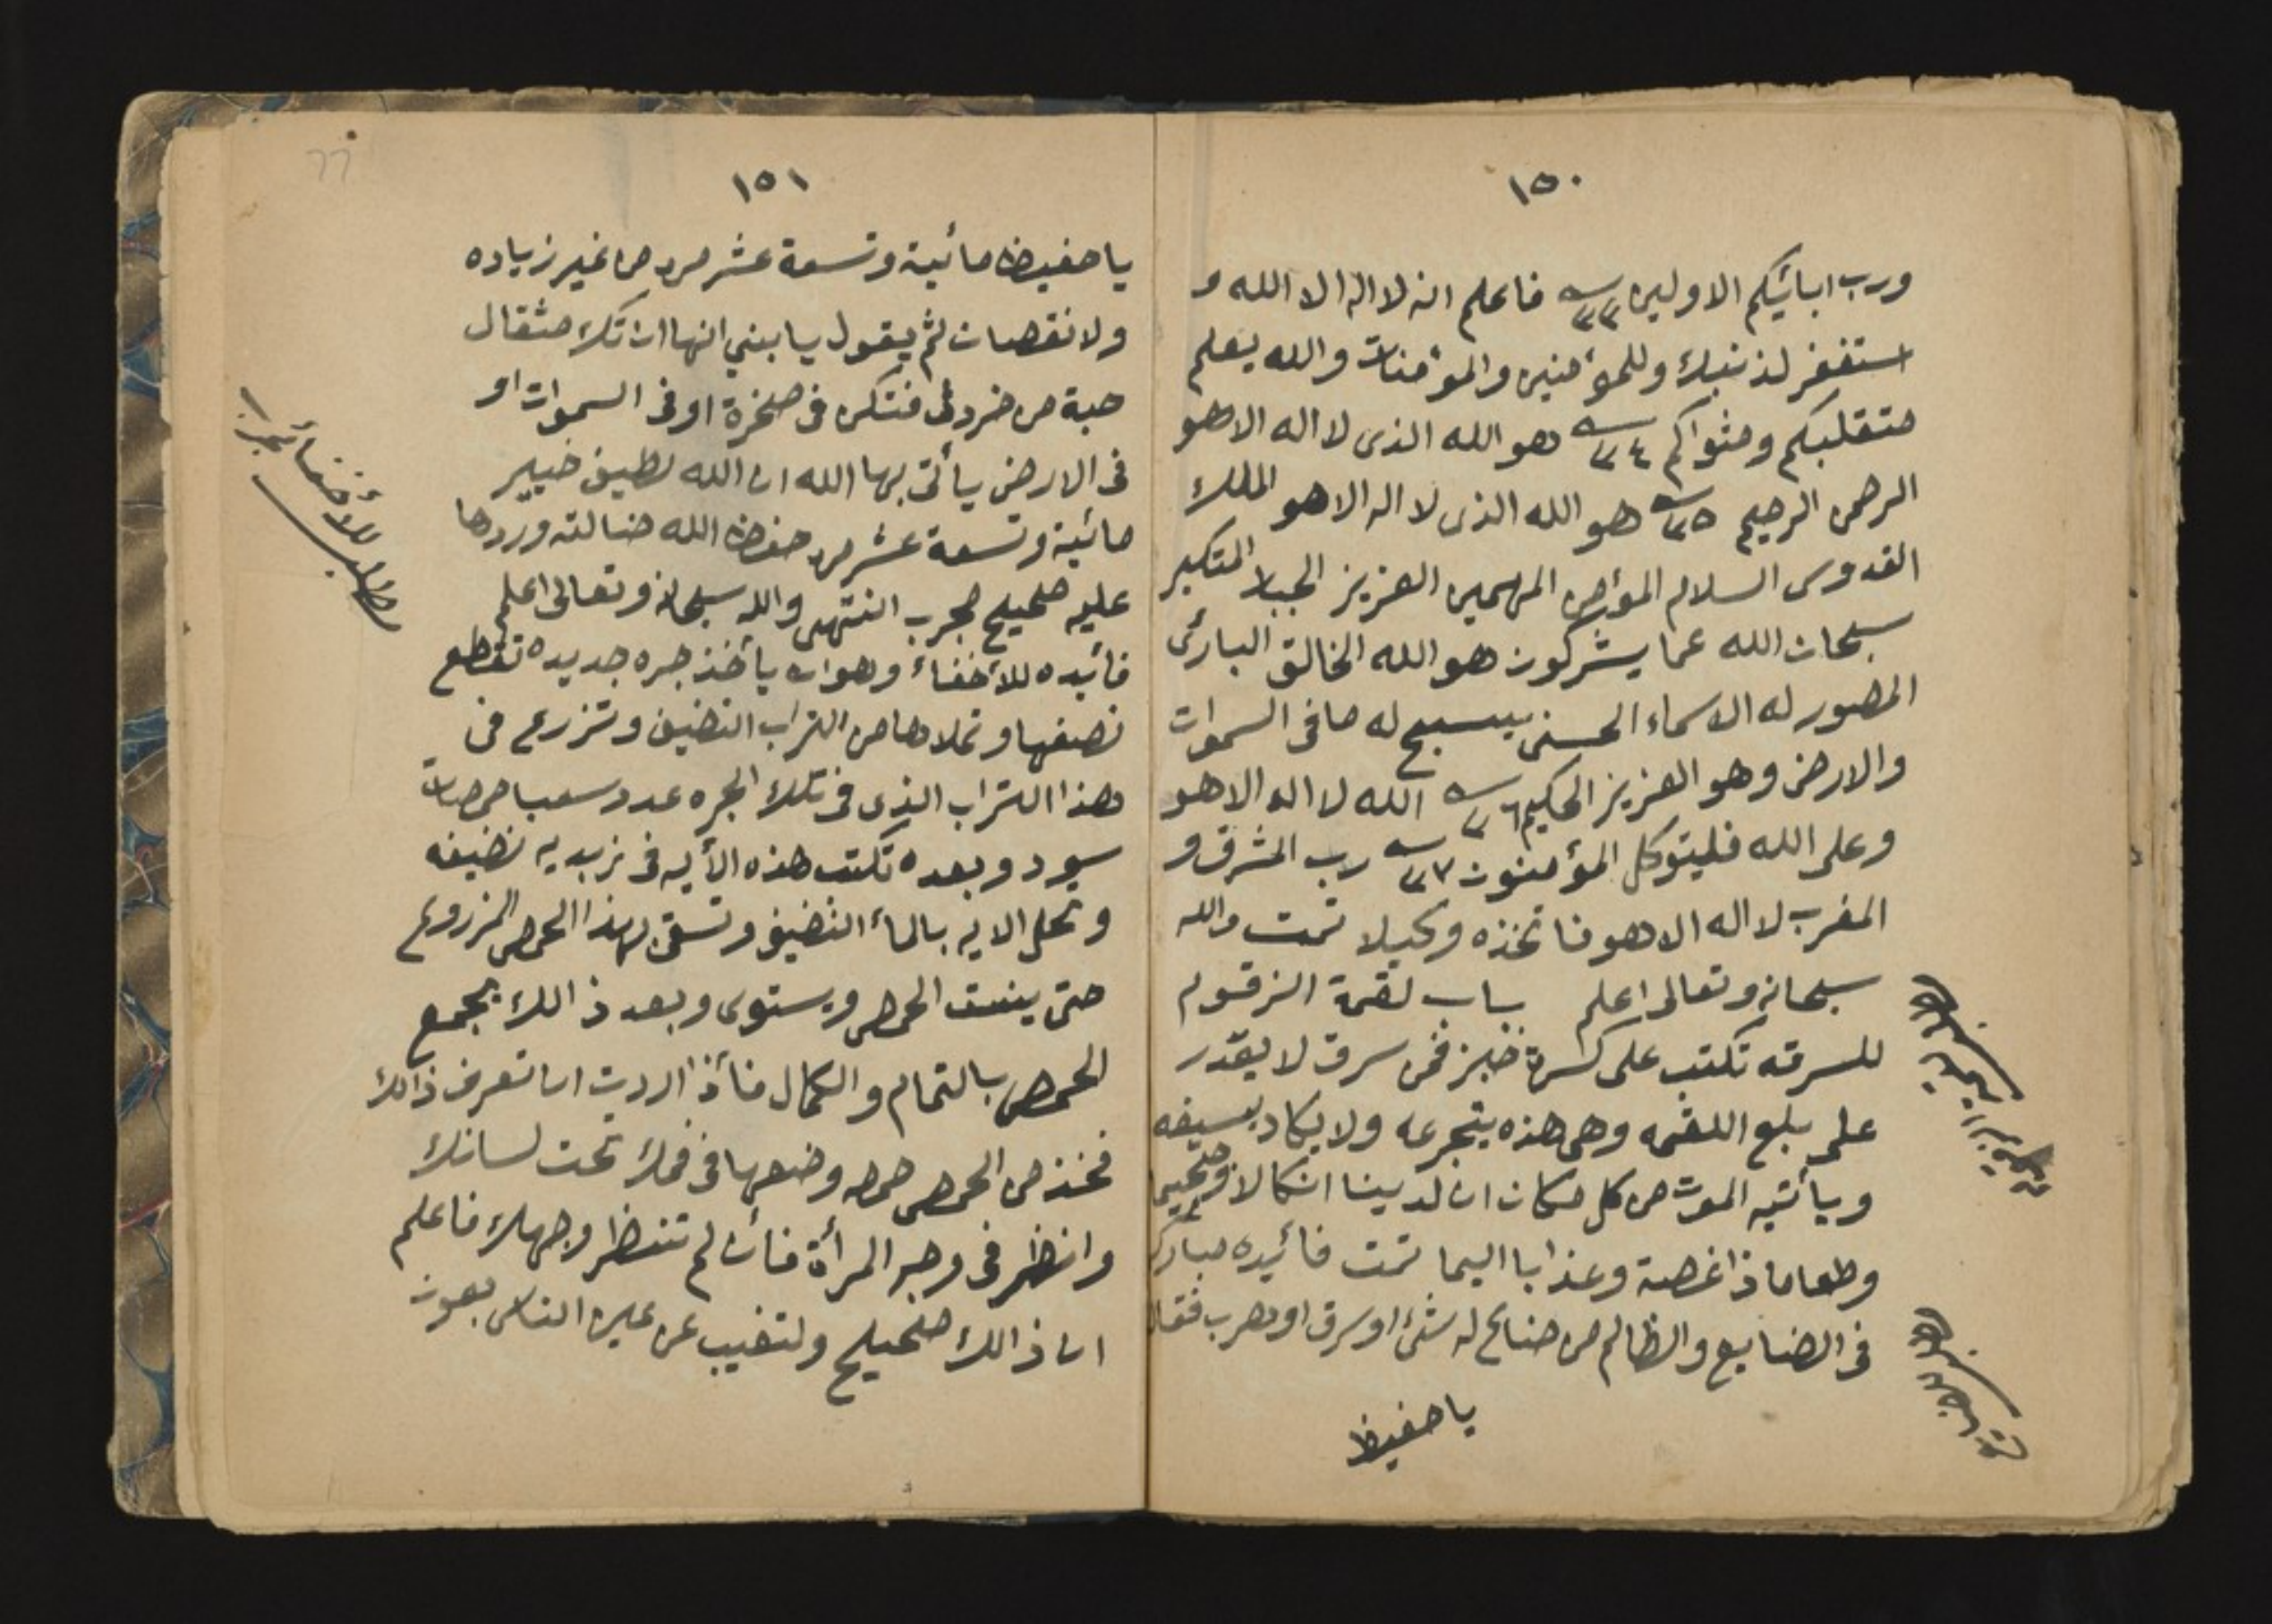 ١٥٠
ورب ابائيكم الاولين ٢٣ فاعلم انه لا اله الا الله و
استغفر لذنبك وللمؤمنين والمؤمنات والله يعلم
متقلبكم ومثواكم ٢٤ هو الله الذى لا اله الا هو
الرحمن الرحيم ٢٥ هو الله الذى لا اله الا هو الملك
القدوس السلام المؤمن المهيمن العزيز الجبار المتكبر
سبحان الله عما يشركون هو الله الخالق البارئ
المصور له الاسماء الحسنى يسبح له ما فى السموات
والارض وهو العزيز الحكيم ٢٦ الله لا اله الا هو
وعلى الله فليتوكل المؤمنون ٢٧ رب المشرق و
المغرب لا اله الا هو فاتخذه وكيلا تمت والله
سبحانه وتعالى اعلم باب لقمة الزقوم
للسرقه تكتب على كسرة خبز فمن سرق لا يقدر
على بلع اللقمه وهى هذه يتجرعه ولا يكاد يسيغه
ويأتيه الموت من كل مكان ان لدينا انكالا وجحيما
وطعاما ذا غصة وعذابا اليما تمت فائيده مباركه
فى الضايع والظالم من ضايع له شئ او سرق او هرب فقال
يا حفيظ
١٥١
يا حفيظ مائية وتسعة عشر مره من غير زياده
ولا نقصان ثم يقول يا بني انها ان تك مثقال
حبة من خردل فتكن فى صخرة او فى السموات او
فى الارض يأتى بها الله ان الله لطيف خبير
مائية وتسعة عشر مره حفظ الله ضالته وردها
عليه صحيح مجرب انتهى والله سبحانه وتعالى اعلم
فائيده للأخفاء وهو ان يأخذ جره جديده تقطع
نصفها وتملاها من التراب النضيف وتزرع فى
هذا التراب الذى فى تلك الجره عدد سبعا حمصات
سود وبعده تكتب هذه الأيه فى زبديه نضيفه
وتحل الايه بالمأ النضيف وتسقى بهذا الحمص المزروع
حتى ينبت الحمص ويستوى وبعد ذالك يجمع
الحمص بالتمام والكمال فأذا اردت ان تعرف ذالك
فخذ من الحمص حمصه وضعها فى فمك تحت لسانك
وانظر فى وجه المرأة فأن لم تنظر وجهك فاعلم
ان ذالك صحيح ولتغيب عن عين الناس بعون
مطلب للأخفأ مجرب